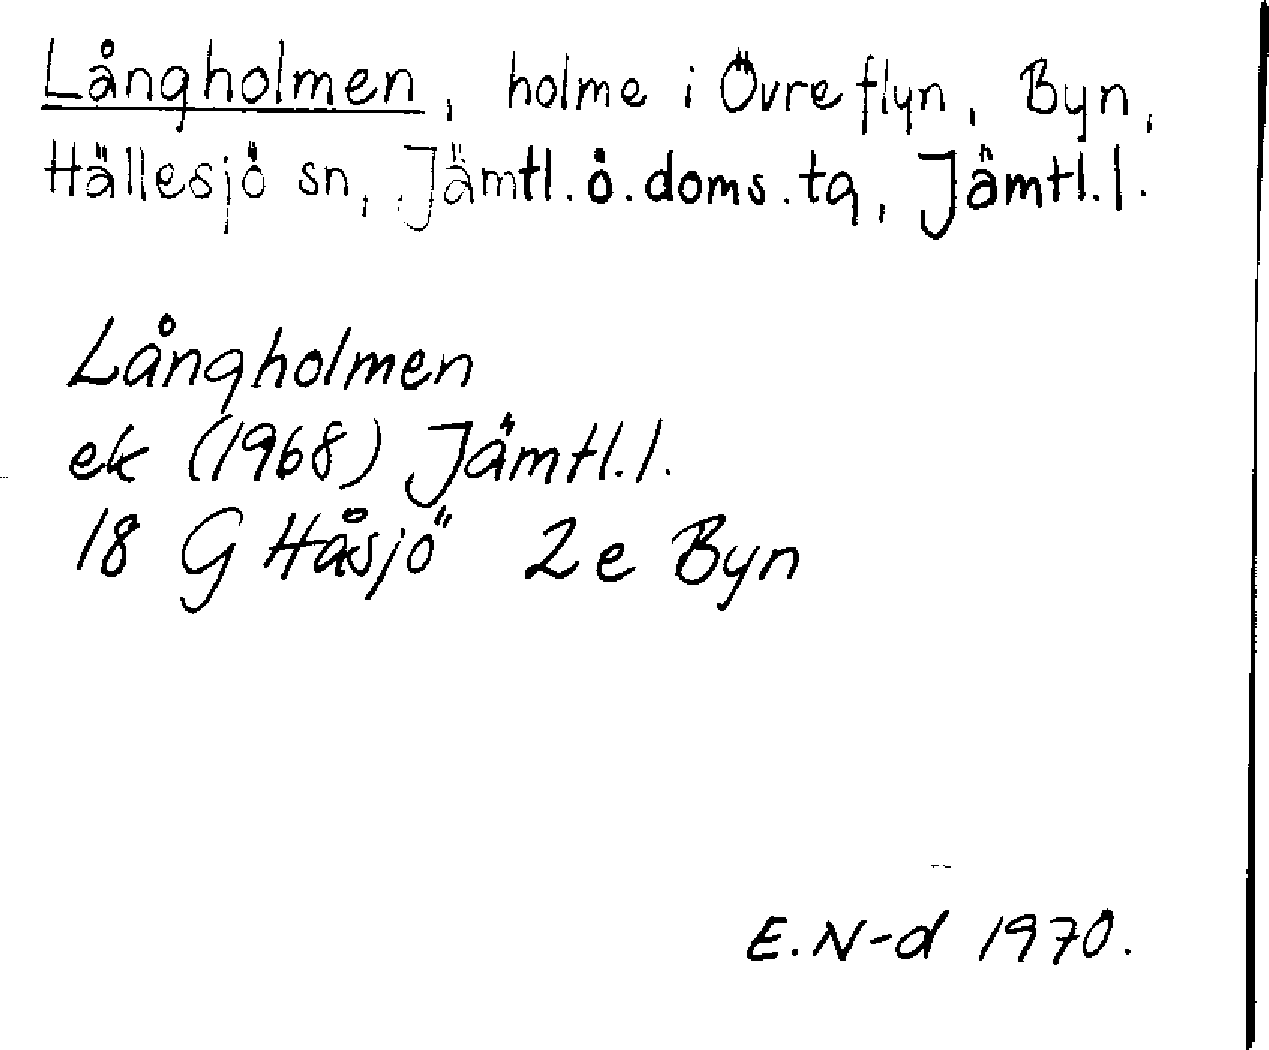 Långholmen, holme i Övreflyn, Byn,
Hällesjö sn, Jämtl. ö. doms. tg, Jämtl. l.
Långholmen
ek (1968) Jämtl. l.
18 G Håsjö 2e Byn
E. N-d 1970.